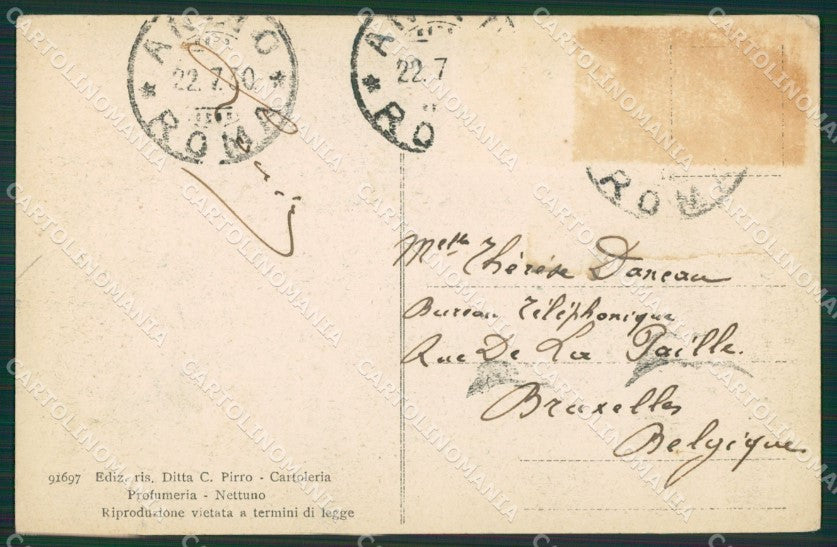 ANZIO
22.7.30
ROMA
ANZ
22.7
RO
ROMA
Melle Thérèse Daneau
Bureau Téléphonique
Rue De La Paille.
Bruxelles
Belgique
91697 Ediz. ris. Ditta C. Pirro - Cartoleria
Profumeria - Nettuno
Riproduzione vietata a termini di legge
CARTOLINOMANIA